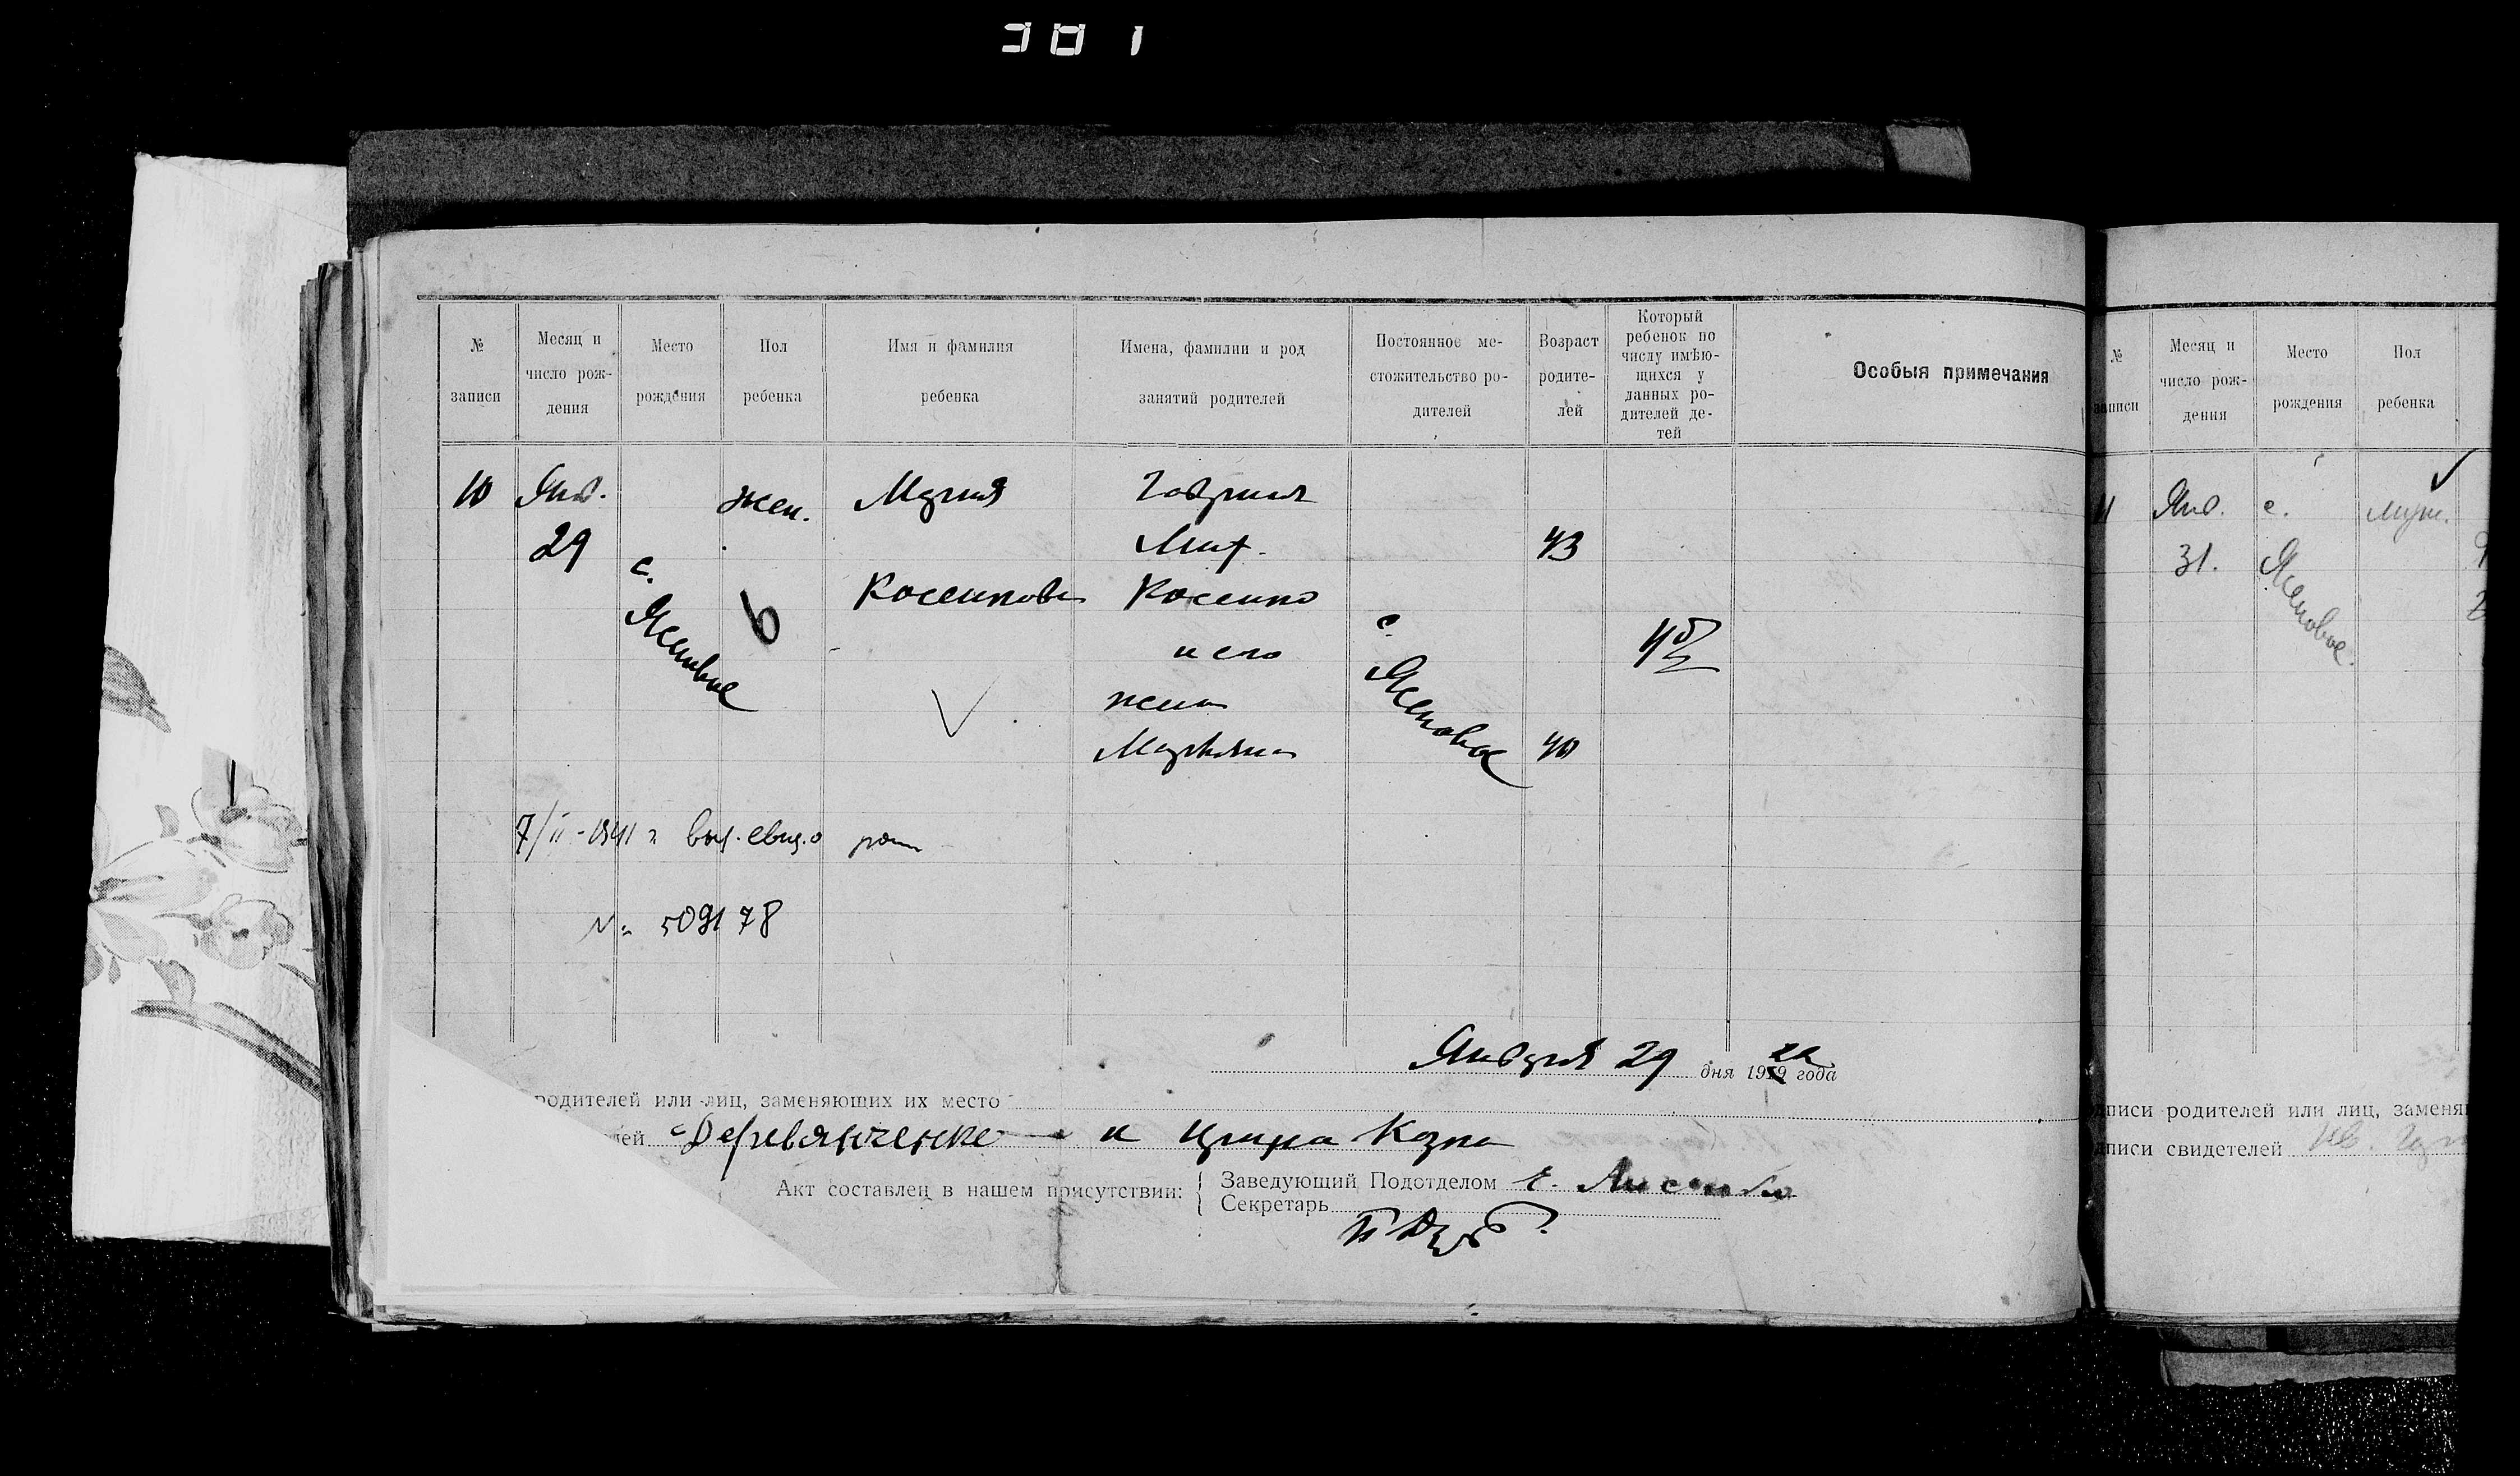 381
№ записи
Месяц и число рождения
Место рождения
Пол ребенка
Имя и фамилия ребенка
Имена, фамилии и род занятий родителей
Постоянное местожительство родителей
Возраст родителей
Который ребенок по числу имѣющихся у данных родителей детей
Особыя примечания
10
Янв.
29
с. Ясеновое
жен.
6
Мария
Гавриил
Мит.
43
и его
жена
Марьяна
с. Ясеновое
40
7/II-1941 г. выд. свид. о рож
№ 509178
Января 29 дня 1922 года
родителей или лиц, заменяющих их место
лей Деревянченко и
Акт составлен в нашем присутствии:
Заведующий Подотделом
Секретарь
№ записи
Месяц и число рождения
Место рождения
Пол ребенка
11
Янв.
31.
с. Ясеновое.
муж.
писи родителей или лиц, заменя
писи свидетелей Ив.